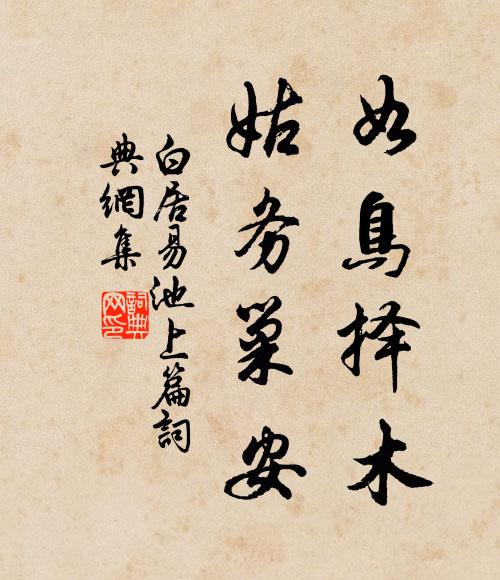 如鳥择木
姑务巢安
白居易池上篇詞
典網集
詞典
网印